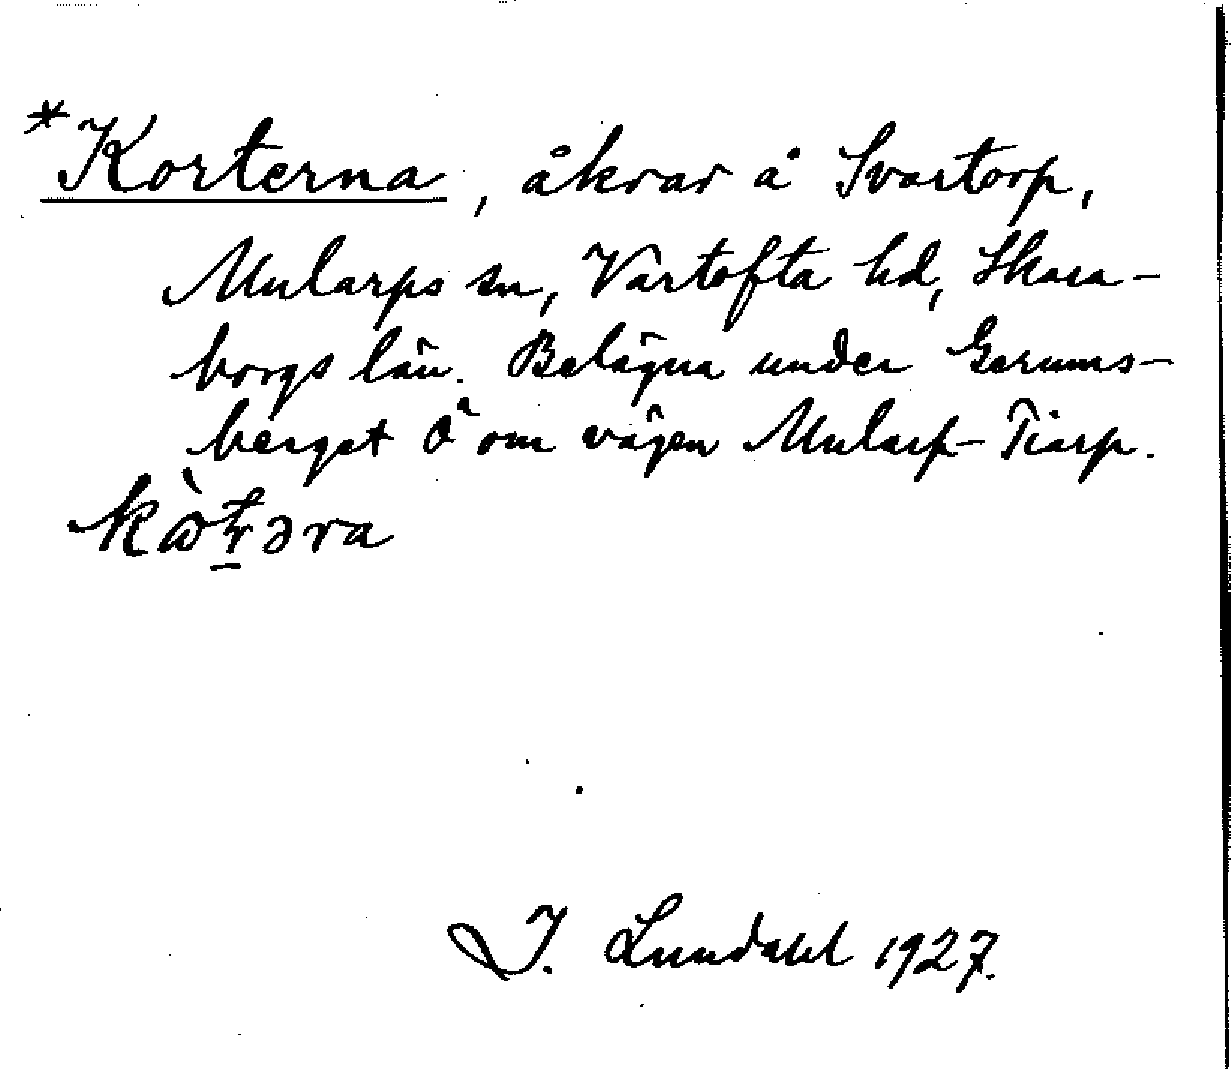 *Korterna, åkrar å Svartorp,
Mularps sn, Vartofta hd, Skara-
borgs län. Belägna under Gerums-
berget Ö om vägen Mularp-Tiarp.
I. Lundahl 1927.